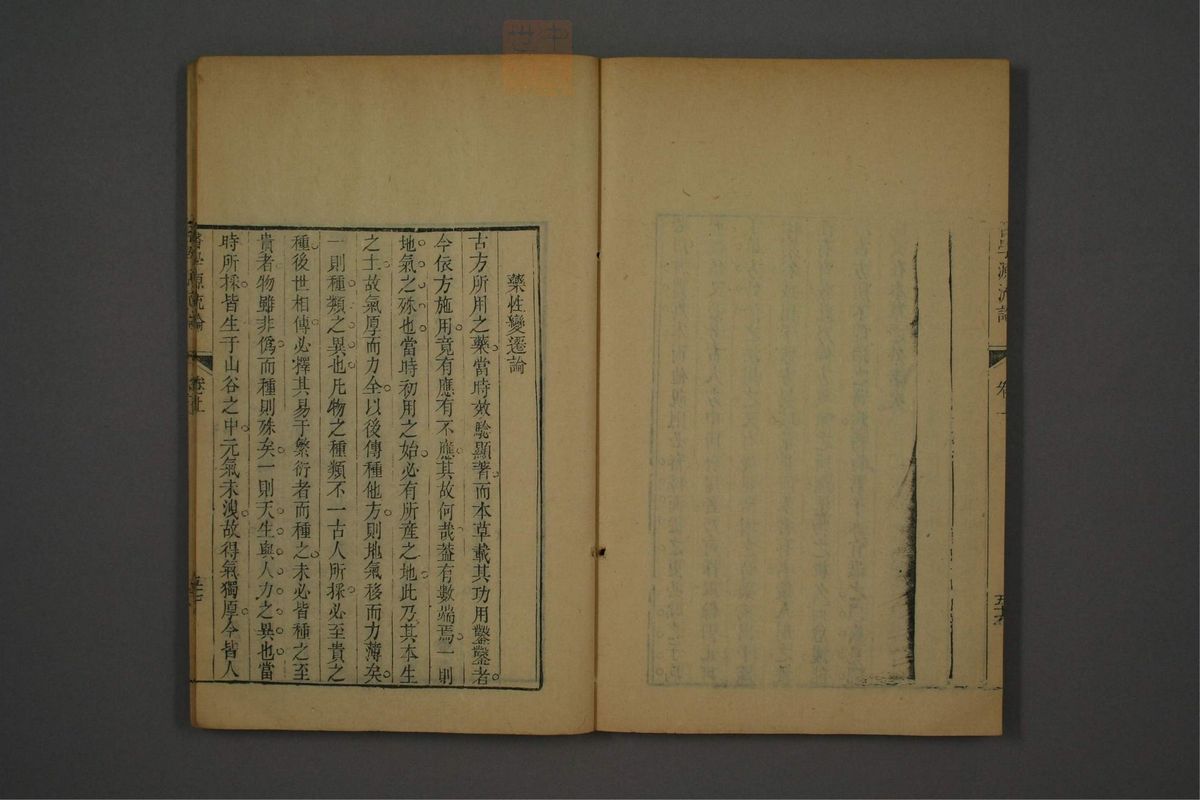 藥性變遷論
古方所用之藥當時效驗顯著而本草載其功用鑿鑿者
今依方施用竟有應有不應其故何哉葢有數端焉一則
地氣之殊也當時初用之始必有所產之地此乃其本生
之土故氣厚而力全以後傳種他方則地氣移而力薄矣
一則種類之異也凡物之種類不一古人所採必至貴之
種後世相傳必擇其易于繁衍者而種之未必皆種之至
貴者物雖非僞而種則殊矣一則天生與人力之異也當
時所採皆生于山谷之中元氣未洩故得氣獨厚今皆人
醫學源流論
卷上